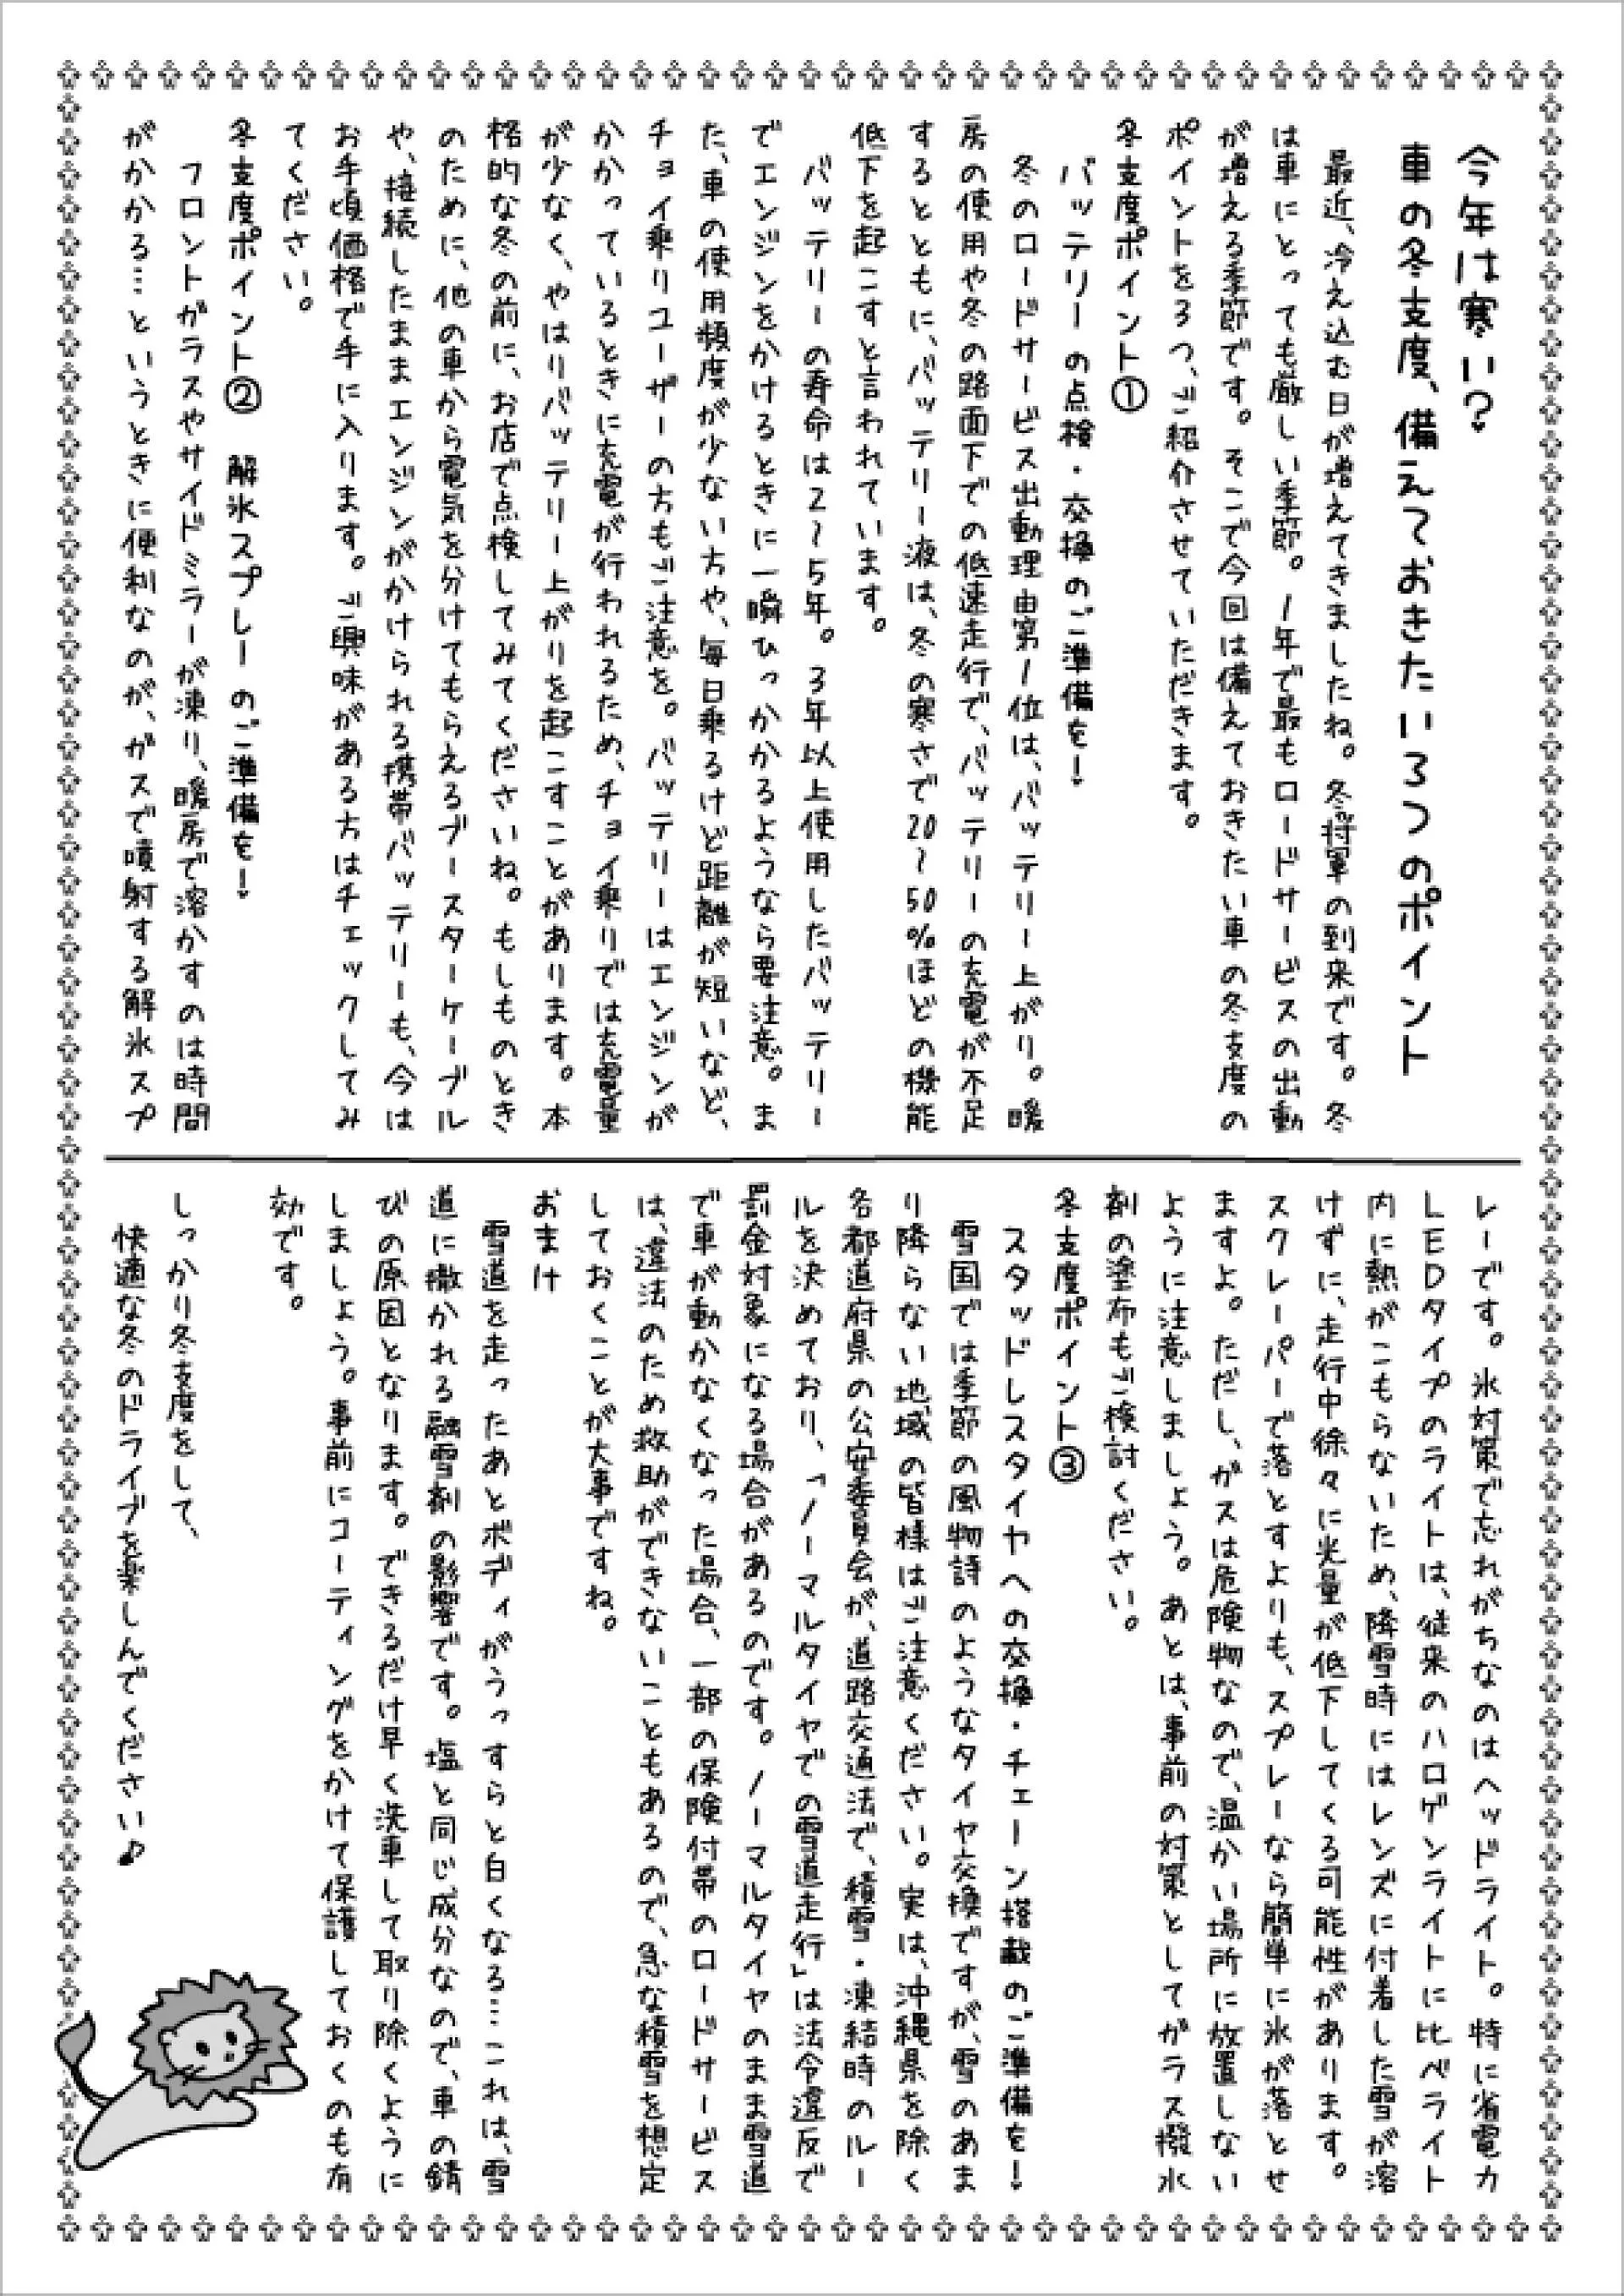 今年は寒い？
車の冬支度、備えておきたい３つのポイント
最近、冷え込む日が増えてきましたね。冬将軍の到来です。冬
は車にとっても厳しい季節。１年で最もロードサービスの出動
が増える季節です。そこで今回は備えておきたい車の冬支度の
ポイントを３つ、ご紹介させていただきます。
冬支度ポイント①
バッテリーの点検・交換のご準備を！
冬のロードサービス出動理由第１位は、バッテリー上がり。暖
房の使用や冬の路面下での低速走行で、バッテリーの充電が不足
するとともに、バッテリー液は、冬の寒さで20～50％ほどの機能
低下を起こすと言われています。
バッテリーの寿命は２～５年。３年以上使用したバッテリー
でエンジンをかけるときに一瞬ひっかかるようなら要注意。ま
た、車の使用頻度が少ない方や、毎日乗るけど距離が短いなど、
チョイ乗りユーザーの方もご注意を。バッテリーはエンジンが
かかっているときに充電が行われるため、チョイ乗りでは充電量
が少なく、やはりバッテリー上がりを起こすことがあります。本
格的な冬の前に、お店で点検してみてくださいね。もしものとき
のために、他の車から電気を分けてもらえるブースターケーブル
や、接続したままエンジンがかけられる携帯バッテリーも、今は
お手頃価格で手に入ります。ご興味がある方はチェックしてみ
てください。
冬支度ポイント② 解氷スプレーのご準備を！
フロントガラスやサイドミラーが凍り、暖房で溶かすのは時間
がかかる…というときに便利なのが、ガスで噴射する解氷スプ
レーです。氷対策で忘れがちなのはヘッドライト。特に省電力
ＬＥＤタイプのライトは、従来のハロゲンライトに比べライト
内に熱がこもらないため、降雪時にはレンズに付着した雪が溶
けずに、走行中徐々に光量が低下してくる可能性があります。
スクレーパーで落とすよりも、スプレーなら簡単に氷が落とせ
ますよ。ただし、ガスは危険物なので、温かい場所に放置しない
ように注意しましょう。あとは、事前の対策としてガラス撥水
剤の塗布もご検討ください。
冬支度ポイント③
スタッドレスタイヤへの交換・チェーン搭載のご準備を！
雪国では季節の風物詩のようなタイヤ交換ですが、雪のあま
り降らない地域の皆様はご注意ください。実は、沖縄県を除く
各都道府県の公安委員会が、道路交通法で、積雪・凍結時のルー
ルを決めており、「ノーマルタイヤでの雪道走行」は法令違反で
罰金対象になる場合があるのです。ノーマルタイヤのまま雪道
で車が動かなくなった場合、一部の保険付帯のロードサービス
は、違法のため救助ができないこともあるので、急な積雪を想定
しておくことが大事ですね。
おまけ
雪道を走ったあとボディがうっすらと白くなる…これは、雪
道に撒かれる融雪剤の影響です。塩と同じ成分なので、車の錆
びの原因となります。できるだけ早く洗車して取り除くように
しましょう。事前にコーティングをかけて保護しておくのも有
効です。
しっかり冬支度をして、
快適な冬のドライブを楽しんでください♪